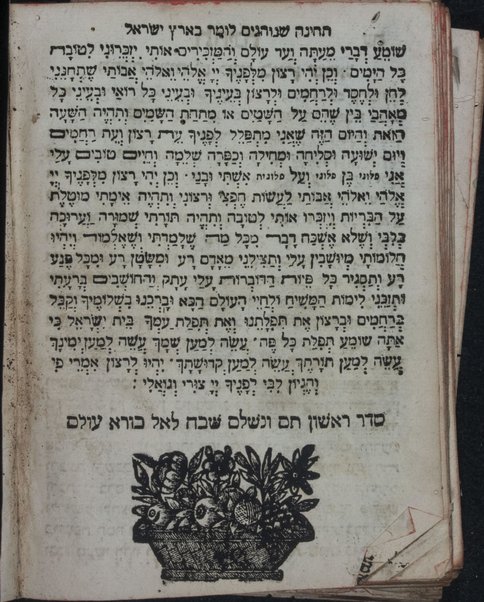 תחינה שנוהגים לומר בארץ ישראל
שומע דברי מעתה ועד עולם והמזכירים אותי יזכרוני לטובה
כל הימים · וכן יהי רצון מלפניך יי אלהי ואלהי אבותי שתתנני
לחן ולחסד ולרחמים ולרצון בעיניך ובעיני כל רואי ובעיני כל
מאהבי בין שהם על השמים או מתחת השמים ותהיה השעה
הזאת והיום הזה שאני מתפלל לפניך עת רצון ועת רחמים
ויום ישועה וסליחה ומחילה וכפרה שלמה וחיים טובים עלי
אני פלוני בן פלוני ועל פלונית אשתי ובני · וכן יהי רצון מלפניך יי
אלהי ואלהי אבותי לעשות חפצי ורצוני ותהיה אימתי מוטלת
על הבריות ויזכרו אותי לטובה ותהיה תורתי שמורה וערוכה
בלבי ושלא אשכח דבר מכל מה שלמדתי ושאלמוד ויהיו
הלומותי מיושבין עלי ותצילני מאדם רע ומשטן רע ומכל פגע
רע ותסגיר כל פיות הדוברות עלי עתק והחושבים ברעתי
ותזכני לימות המשיח ולחיי העולם הבא וברכנו בשלומיך וקבל
ברחמים וברצון את תפלתנו ואת תפלת עמך בית ישראל כי
אתה שומע תפלת כל פה · עשה למען שמך עשה למען ימינך
עשה למען תורתך עשה למען קדושתך · יהיו לרצון אמרי פי
והגיון לבי לפניך יי צורי וגואלי :
סדר ראשון תם ונשלם שבח לאל בורא עולם